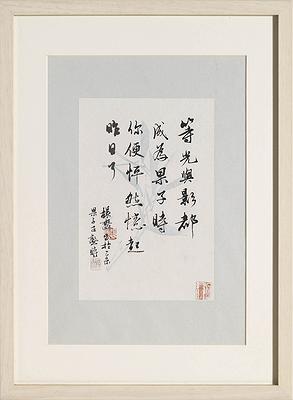 等光與影都
成為果子時
你便怦然憶起
昨日了